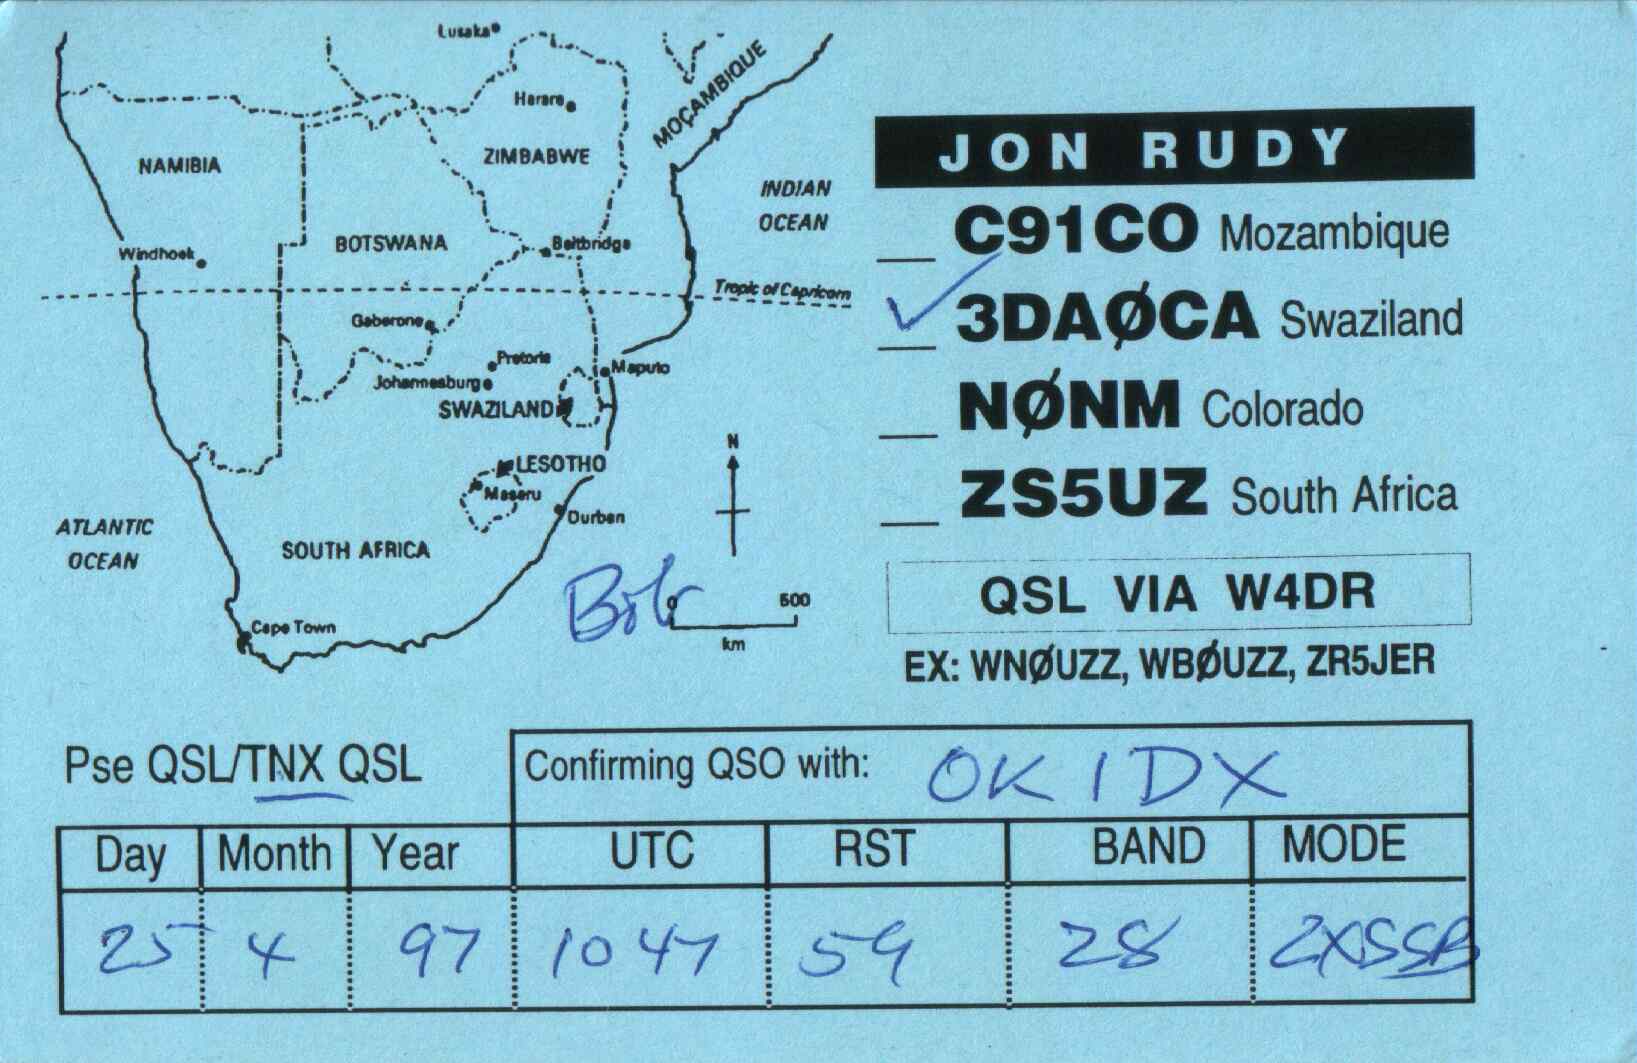 Lusaka
Harare
MOÇAMBIQUE
NAMIBIA
ZIMBABWE
INDIAN
OCEAN
Windhoek
BOTSWANA
Beitbridge
Tropic of Capricorn
Gaberone
Pretoria
Johannesburg
Maputo
SWAZILAND
N
LESOTHO
Maseru
Durban
ATLANTIC
OCEAN
SOUTH AFRICA
Cape Town
Bob
0 500
km
JON RUDY
__ C91CO Mozambique
✓ 3DAØCA Swaziland
__ NØNM Colorado
__ ZS5UZ South Africa
QSL VIA W4DR
EX: WNØUZZ, WBØUZZ, ZR5JER
Pse QSL/TNX QSL
Confirming QSO with: OK1DX
Day Month Year UTC RST BAND MODE
25 4 97 1047 59 28 2XSSB